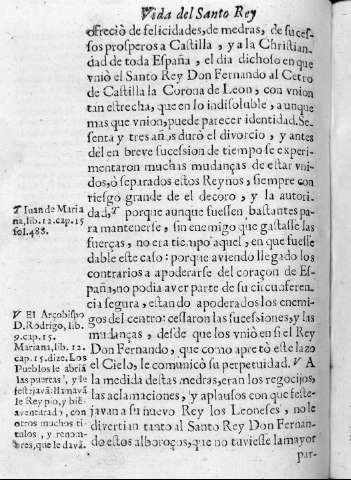 Vida del Santo Rey
ofreciò de felicidades, de medras, de suces-
sos prosperos a Castilla, y a la Christian-
dad de toda España, el dia dichoso en que
vniò el Santo Rey Don Fernando al Cetro
de Castilla la Corona de Leon, con vnion
tan estrecha, que en lo indisoluble, aunque
mas que vnion, puede parecer identidad. Se-
senta y tres años durò el divorcio, y antes
dèl en breve sucession de tiempo se experi-
mentaron muchas mudanças de estar vni-
dos, ò separados estos Reynos, siempre con
riesgo grande de el decoro, y la autori-
dad, T porque aunque fuessen bastantes pa-
ra mantenerse, sin enemigo que gastasse las
fuerças, no era tiempo aquel, en que fuesse
dable este caso: porque aviendo llegado los
contrarios a apoderarse del coraçon de Es-
paña, no podia aver parte de su circunferen-
cia segura, estando apoderados los enemi-
gos del centro: cessaron las sucessiones, y las
mudanças, desde que los vniò en si el Rey
Don Fernando, que como apretò este lazo
el Cielo, le comunicò su perpetuidad. V A
la medida destas medras, eran los regocijos,
las aclamaciones, y aplausos con que feste-
javan a su nuevo Rey los Leoneses, no le
divertian tanto al Santo Rey Don Fernan-
do estos alboroços, que no tuviesse la mayor
par-
T Iuan de Maria
na, lib. 12. cap. 15
fol. 488.
V El Arçobispo
D. Rodrigo, lib.
9. cap. 15.
Mariana, lib. 12.
cap. 15. dize. Los
Pueblos le abriã
las puertas, y le
festejavã: llamavã
le Rey pio, y biẽ-
aventurado, con
otros muchos ti-
tulos, y renom-
bres, que le davã.